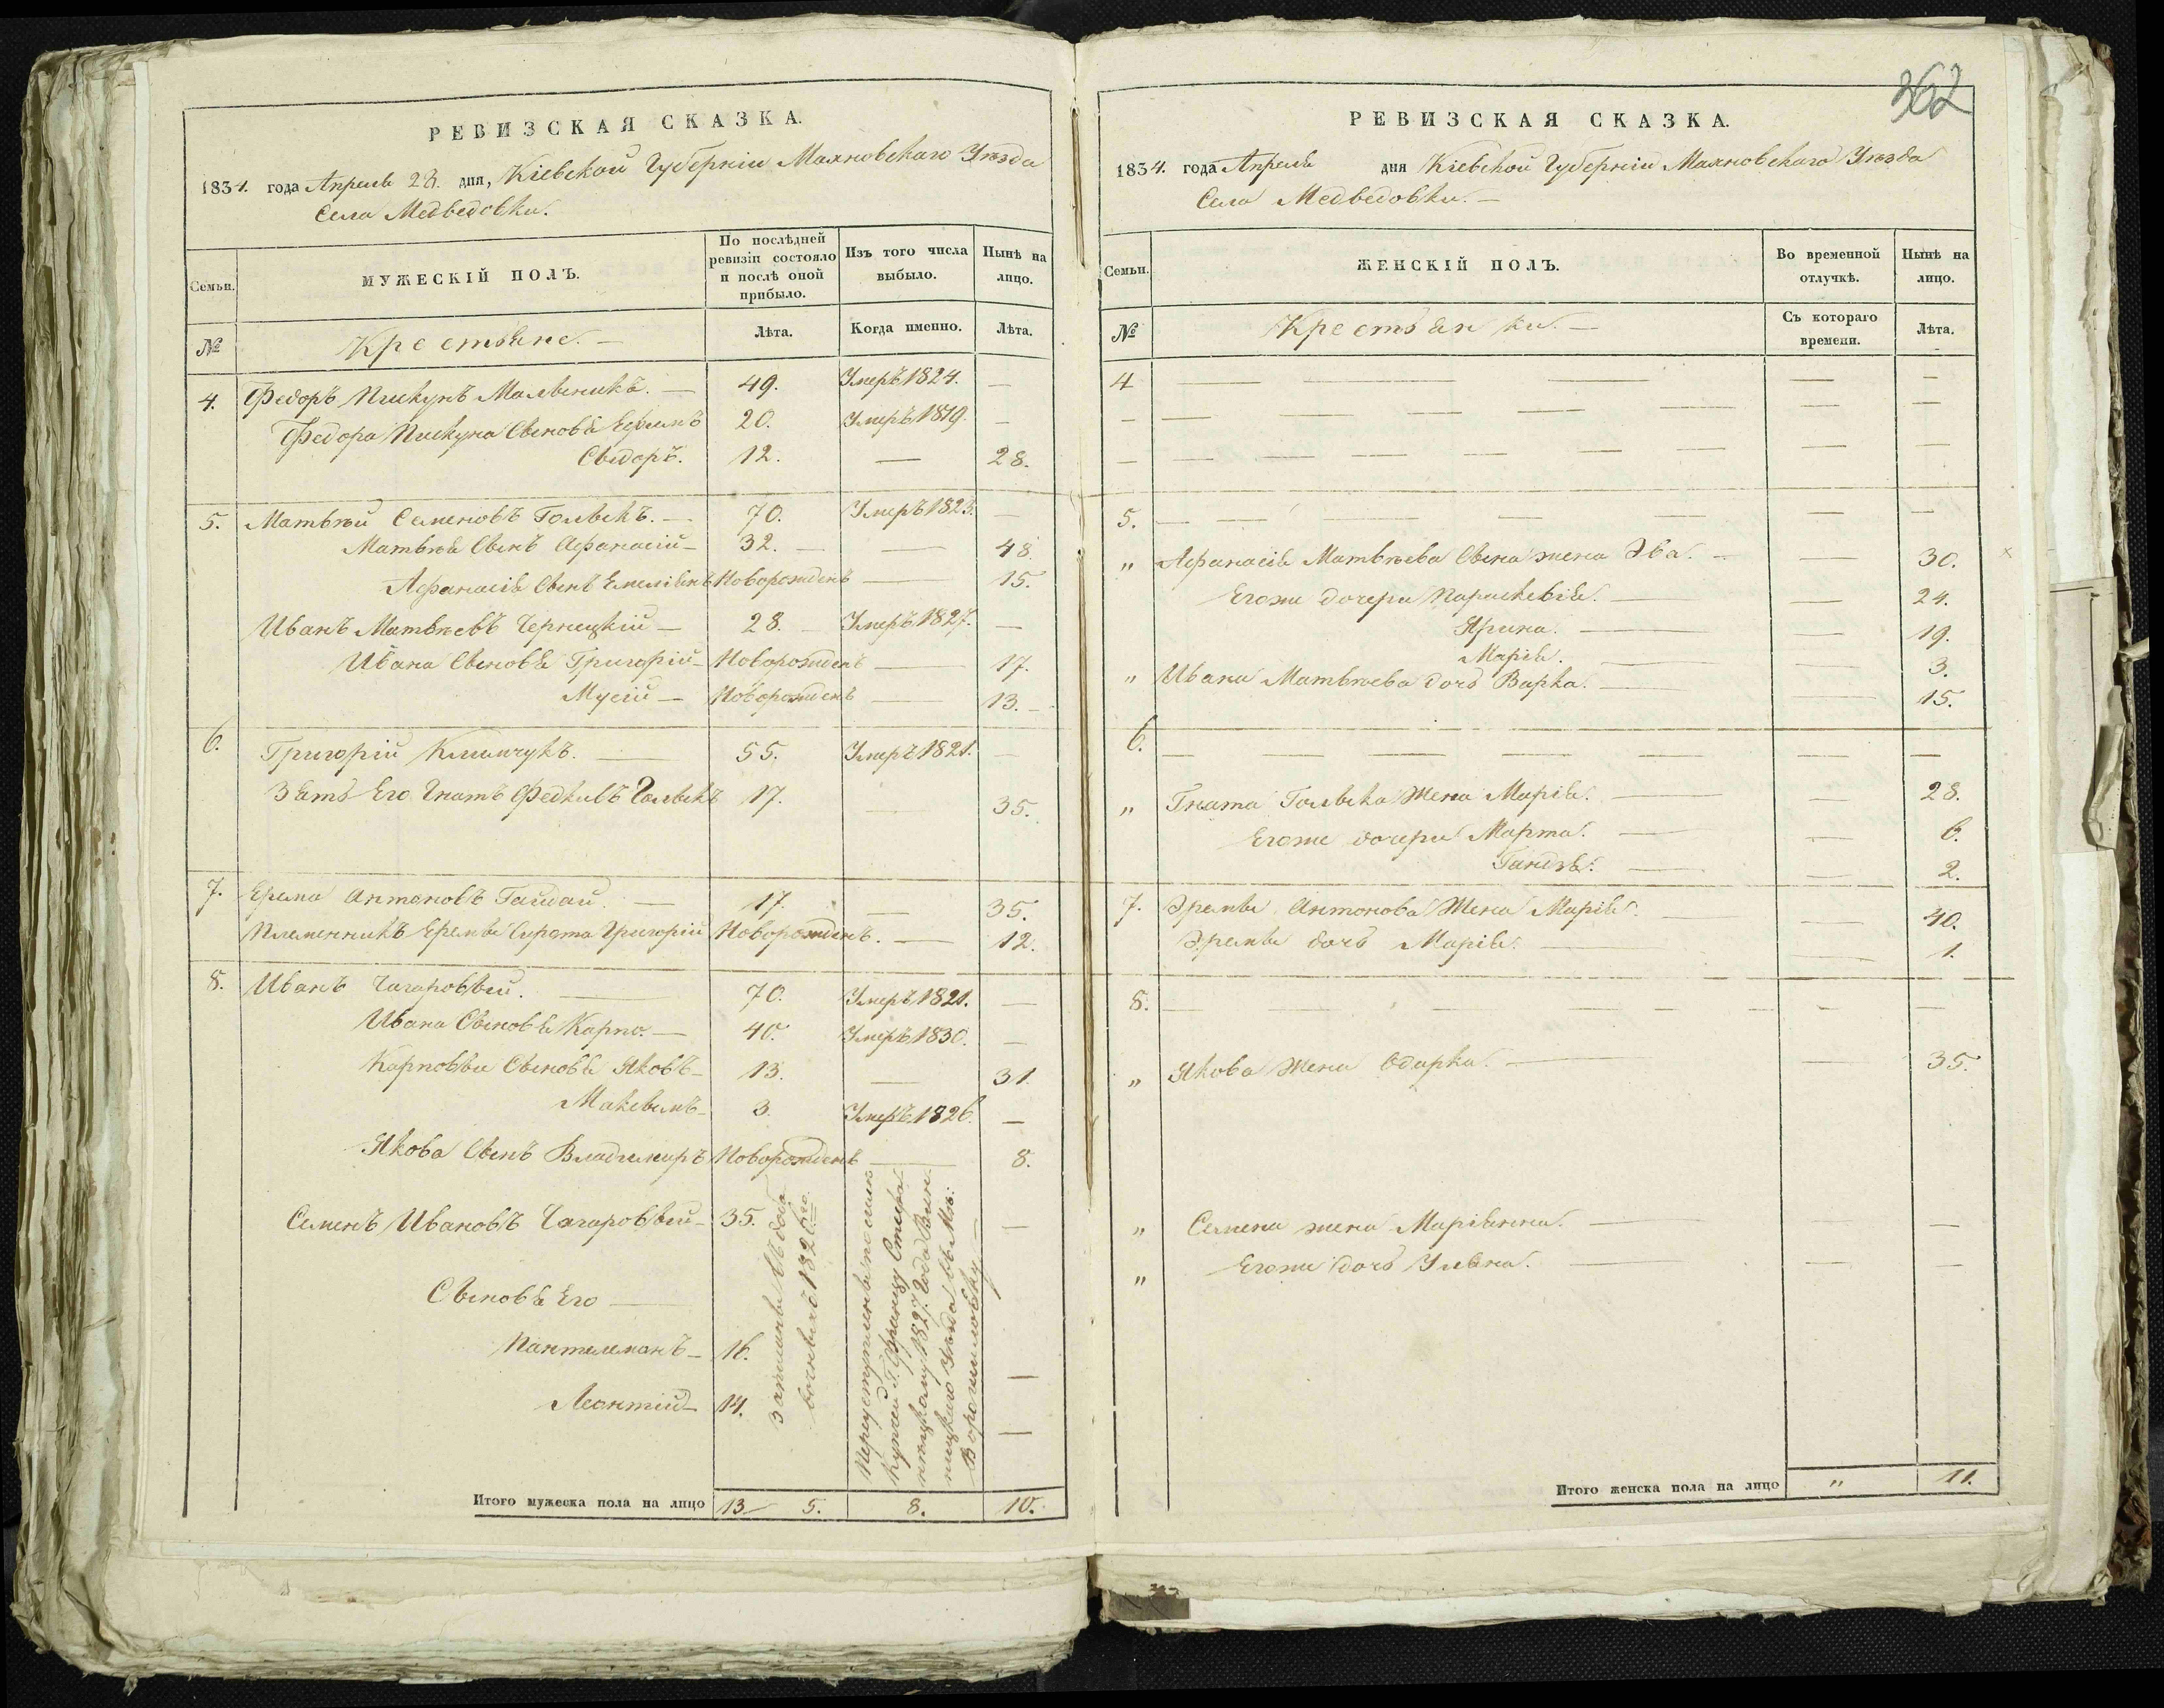 РЕВИЗСКАЯ СКАЗКА.
1834. года Апреля 28. дня, Кіевской Губерніи Махновскаго Уѣзда
Села Медведовки.
Семьи.
МУЖЕСКІЙ ПОЛЪ.
По послѣдней ревизіи состояло и послѣ оной прибыло.
Изъ того числа выбыло.
Нынѣ на лицо.
№
Крестьяне. —
Лѣта.
Когда именно.
Лѣта.
4. Федоръ Пискунъ Мальникъ. — 49. Умеръ 1824. —
Федора Пискуна Сыновья Ефимъ 20. Умеръ 1819. —
Сидоръ. 12. — 28.
5. Матвѣй Семеновъ Голыкъ. — 70. Умеръ 1823. —
Матвѣя Сынъ Афанасій — 32. — — 48.
Афанасія Сынъ Емеліянъ Новорожденъ — 15.
Иванъ Матвѣевъ Чернецкій — 28. — Умеръ 1827. —
Ивана Сыновья Григорій — Новорожденъ — 17.
Мусій — Новорожденъ — 13. —
6. Григорій Климчукъ. — 55. Умеръ 1821. —
Зять Его Гнатъ Федкивъ Голыкъ 17. — 35.
7. Ерема Антоновъ Гайдай. — 17. — 35.
Племенникъ Еремы Сирота Григорій Новорожденъ. — 12.
8. Иванъ Чагаровый. — 70. Умеръ 1821. —
Ивана Сыновья Карпо. — 40. Умеръ 1830. —
Карповы Сыновья Яковъ — 13. — 31.
Максымъ — 3. Умеръ 1826. —
Якова Сынъ Владимиръ Новорожденъ — 8.
Семенъ Ивановъ Чагаровый — 35. —
Сыновья Его —
Пантелемонъ — 16. —
Леонтій — 14. —
Записаны въ
1826го
Переуступлены по
купчей Г. Францу
1827. Года Вин
ницкаго Уѣзда въ
Ворошиловку —
Итого мужеска пола на лицо 13 5. 8. 10.
362
РЕВИЗСКАЯ СКАЗКА.
1834. года Апреля дня Кіевской Губерніи Махновскаго Уѣзда
Села Медведовки. —
Семьи.
ЖЕНСКІЙ ПОЛЪ.
Во временной отлучкѣ.
Нынѣ на лицо.
№
Крестьянки. —
Съ котораго времени.
Лѣта.
4 — — — — —
- — — — — — —
- — — — — — —
5. — — — — — —
„ Афанасія Матвѣева Сына жена Эва. — — 30.
Егоже дочери Параскевія. — — 24.
Ярина. — — 19.
Марія. — — 3.
„ Ивана Матвѣева дочь Варка. — — 15.
6. — — — — — —
„ Гната Голыка Жена Марія. — — 28.
Егоже дочери Марта. — — 6.
Гандзя. — — 2.
7. Эремы Антонова Жена Марія. — — 40.
Эремы дочь Марія. — — 1.
8. — — — — — —
„ Якова Жена Одарка. — — 35.
„ Семена жена Маріянна. — — —
„ Егоже дочь Уляна. — — —
Итого женска пола на лицо „ 11.